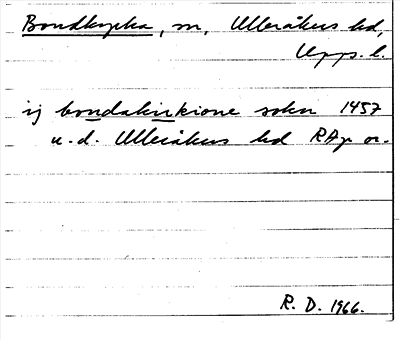 Bondkyrka, sn, Ulleråkers hd,
Upps. l.
ij bondakirkione sokn 1457
u.d. Ulleråkers hd RAp or.
R. D. 1966.